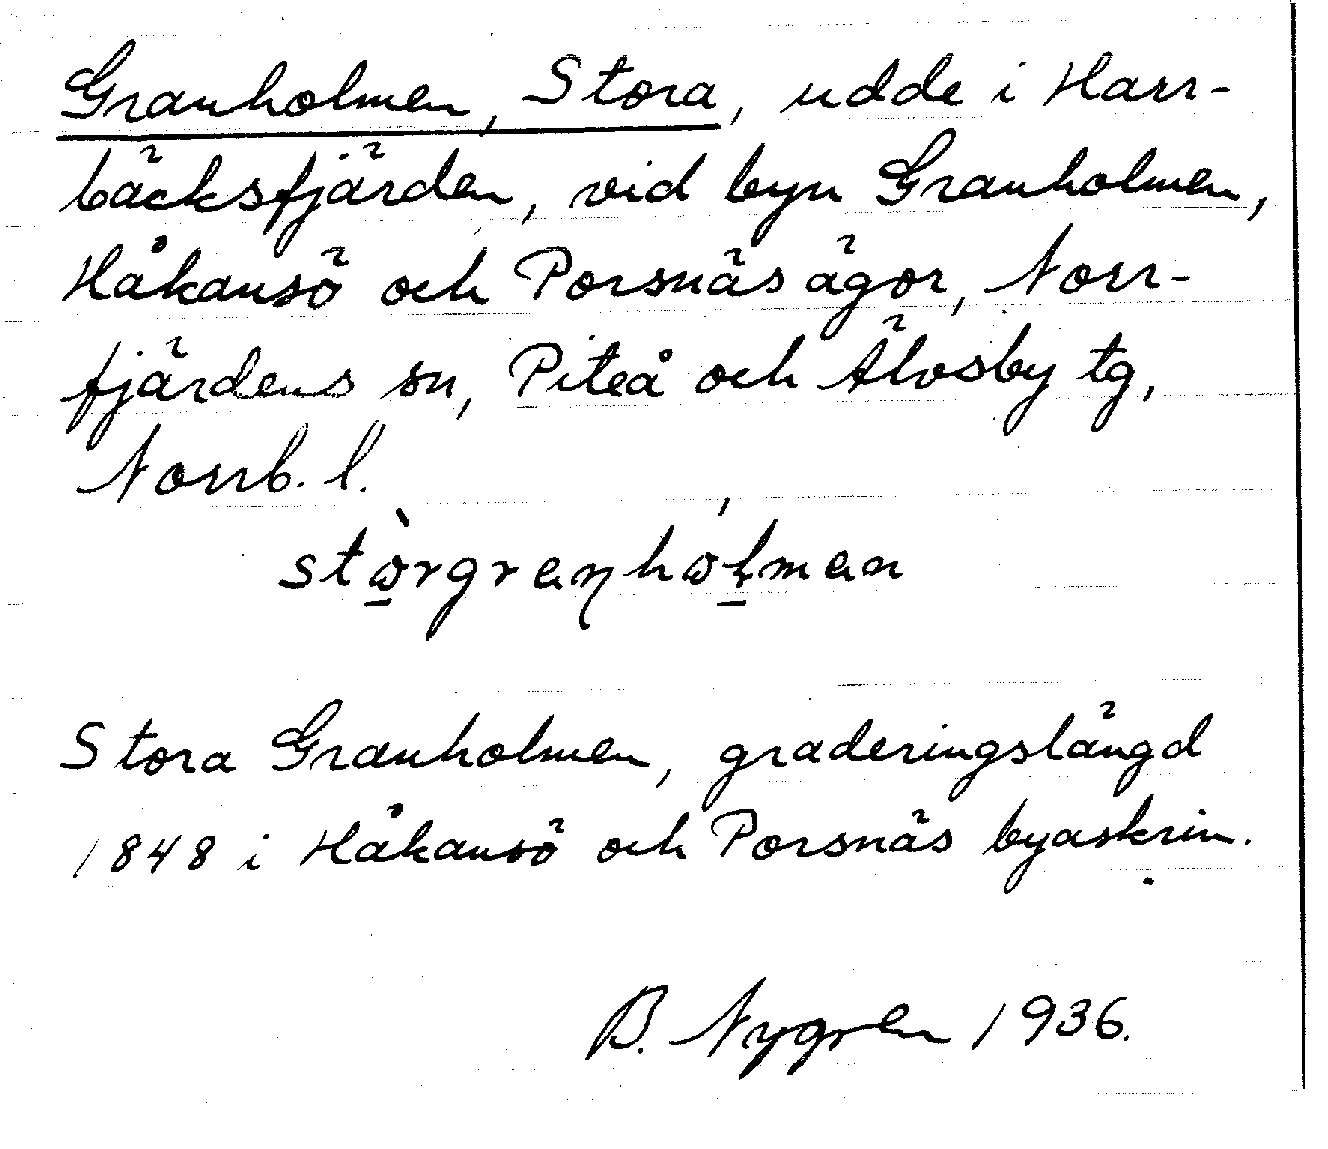 Granholmen, Stora, udde i Harr-
bäcksfjärden, vid byn Granholmen,
Håkansö och Porsnäs ägor, Norr-
fjärdens sn, Piteå och Älvsby tg,
Norrb. l.
stòrgranhólman
Stora Granholmen, graderingslängd
1848 i Håkansö och Porsnäs byaskrin.
B. Nygren 1936.